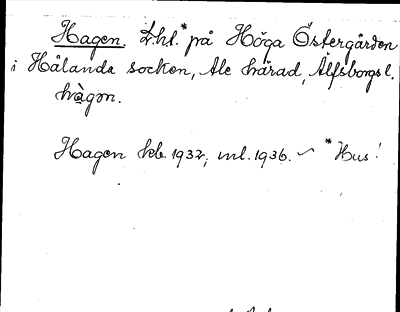 Hagen. Lht.* på Höga Östergården
i Hålanda socken, Ale härad, Älfsborgs l.
hàgɔn.
Hagen kb. 1932; ml. 1936. ~ *Hus!